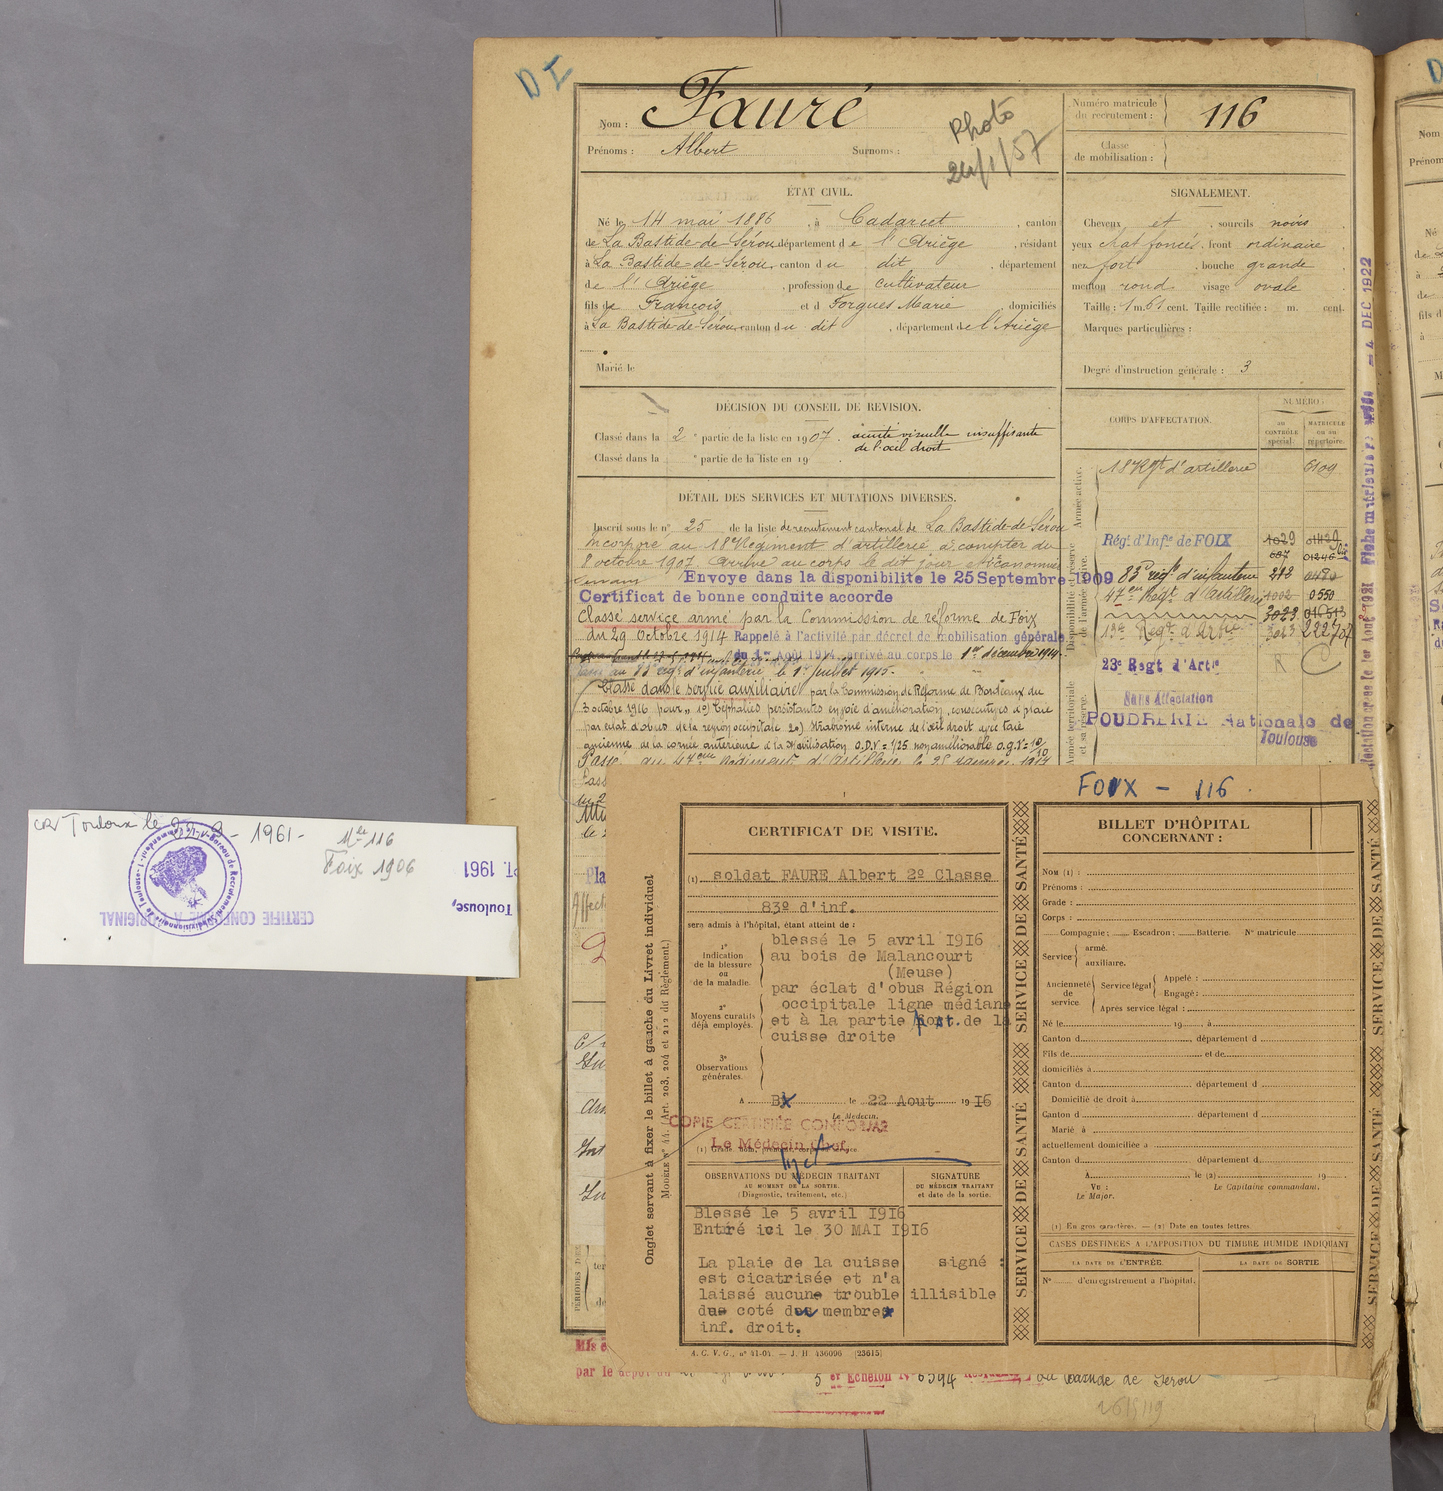 D I
Nom : Fauré
Prénoms : Albert Surnoms :
Photo
24/1/57
Numéro matricule du recrutement : 116
Classe de mobilisation :
ÉTAT CIVIL.
Né le 14 mai 1886, à Cadarcet, canton
de La Bastide-de-Sérou, département de l'Ariège, résidant
à La Bastide-de-Sérou, canton du dit, département
de l'Ariège, profession de cultivateur
fils de François et d Forgues Marie domiciliés
à La Bastide-de-Sérou, canton du dit, département de l'Ariège
Marié le
SIGNALEMENT.
Cheveux et, sourcils noirs
yeux chat foncés, front ordinaire
nez fort, bouche grande
menton rond visage ovale
Taille : 1 m. 61 cent. Taille rectifiée : m. cent.
Marques particulières :
Degré d'instruction générale : 3
DÉCISION DU CONSEIL DE REVISION.
Classé dans la 2e partie de la liste en 1907. acuité visuelle insuffisante
de l'œil droit
Classé dans la e partie de la liste en 19
DÉTAIL DES SERVICES ET MUTATIONS DIVERSES.
Inscrit sous le n° 25 de la liste de recrutement cantonal de La Bastide-de-Sérou
Incorporé au 18e Régiment d'artillerie à compter du
8 octobre 1907. Arrivé au corps le dit jour
Envoyé dans la disponibilité le 25 Septembre 1909
Certificat de bonne conduite accordé
Classé service armé par la Commission de réforme de Foix
du 29 Octobre 1914 Rappelé à l'activité par décret de mobilisation générale
du 1er Août 1914, arrivé au corps le 1er décembre 1914.
Passé au 83e rég. d'infanterie le 1er juillet 1915.
Classé dans le service auxiliaire par la Commission de Réforme de Bordeaux du
3 octobre 1916 pour 1°) Céphalées persistantes en voie d'amélioration, consécutives à plaie
par éclat d'obus de la région occipitale 2°) Strabisme interne de l'œil droit avec taie
ancienne de la cornée antérieure à la Mobilisation O.D.V = 1/25 non améliorable O.G.V = 10/10
Passé au 47ème Régiment d'Artillerie le
CORPS D'AFFECTATION.
NUMÉRO
AU CONTRÔLE spécial.
MATRICULE ou au répertoire.
Armée active.
18e Rgt d'artillerie 6109
Disponibilité et réserve de l'armée active.
Régt d'Infie de FOIX 1029
83e régt d'infanterie 212
47ème Régt d'Artillerie 1002 0550
23e Regt d'Artie
Armée territoriale et sa réserve.
Sans Affectation
POUDRERIE Nationale de
Toulouse
= 4 DEC 1922
Toulouse le 22-9-1961-
Mle 116
Foix 1906
Bureau de Recrutement
CERTIFIE CONFORME A L'ORIGINAL
Toulouse,
PT. 1961
FOIX - 116.
Onglet servant à fixer le billet à gauche du Livret individuel
MODÈLE N° 44. (Art. 203, 204 et 212 du Règlement.)
CERTIFICAT DE VISITE.
(1) soldat FAURE Albert 2º Classe
83º d'inf.
sera admis à l'hôpital, étant atteint de :
1° Indication de la blessure ou de la maladie.
2° Moyens curatifs déjà employés.
3° Observations générales.
blessé le 5 avril 1916
au bois de Malancourt
(Meuse)
par éclat d'obus Région
occipitale ligne médiane
et à la partie post. de la
cuisse droite
A Bx le 22 Aout 1916
Le Médecin,
COPIE CERTIFIÉE CONFORME
Le Médecin Chef,
(1) Grade, nom, prénoms, corps ou service
OBSERVATIONS DU MÉDECIN TRAITANT
AU MOMENT DE LA SORTIE.
(Diagnostic, traitement, etc.)
SIGNATURE
DU MÉDECIN TRAITANT
et date de la sortie.
Blessé le 5 avril 1916
Entré ici le 30 MAI 1916
La plaie de la cuisse
est cicatrisée et n'a
laissé aucune trouble
due coté des membres
inf. droit.
signé :
illisible
A. C. V. G., n° 41-01. — J. H. 436096 [23615]
SERVICE DE SANTÉ SERVICE DE SANTÉ
BILLET D'HÔPITAL
CONCERNANT :
NOM (1) :
Prénoms :
Grade :
Corps :
Compagnie : Escadron : Batterie. N° matricule
Service armé. auxiliaire.
Ancienneté de service
Service légal Appelé :
Engagé :
Après service légal :
Né le 19 à
Canton d , département d
Fils de et de
domiciliés à
Canton d département d
Domicilié de droit à
Canton d département d
Marié à
actuellement domiciliée à
Canton d département d
A le (2) 19
Vu :
Le Major.
Le Capitaine commandant,
(1) En gros caractères. — (2) Date en toutes lettres
CASES DESTINÉES A L'APPOSITION DU TIMBRE HUMIDE INDIQUANT
LA DATE DE L'ENTRÉE.
LA DATE DE SORTIE.
N° d'enregistrement à l'hôpital.
SERVICE DE SANTÉ SERVICE DE SANTÉ
PÉRIODES D'EX
par le dépôt
5 er Echelon N° 6394 La Bastide de Sérou